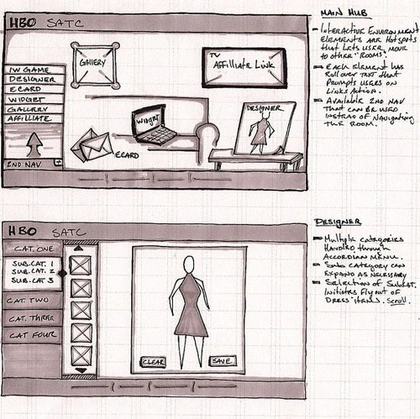 HBO SATC
GALLERY
TV
AFFILIATE LINK
IW GAME
DESIGNER
ECARD
WIDGET
GALLERY
AFFILIATE
2ND NAV
WIDGET
ECARD
DESIGNER
MAIN HUB
- INTERACTIVE ENVIRONMENT
ELEMENTS ARE HOTSPOTS
THAT LETS USER MOVE
TO OTHER "ROOMS".
- EACH ELEMENT HAS
ROLLOVER TEXT THAT
PROMPTS USERS ON
LINKS ACTION.
- AVAILABLE 2ND NAV
THAT CAN BE USED
INSTEAD OF NAVIGATING
THE ROOM.
HBO SATC
CAT. ONE
SUB.CAT. 1
SUB.CAT. 2
SUB.CAT 3
CAT. TWO
CAT. THREE
CAT FOUR
CLEAR
SAVE
DESIGNER
- MULTIPLE CATEGORIES
HANDLED THROUGH
ACCORDIAN MENU.
- SUB CATEGORY CAN
EXPAND AS NECESSARY
- SELECTION OF SUBCAT.
INITIATES FLYOUT OF
DRESS ITEMS. SCROLL.